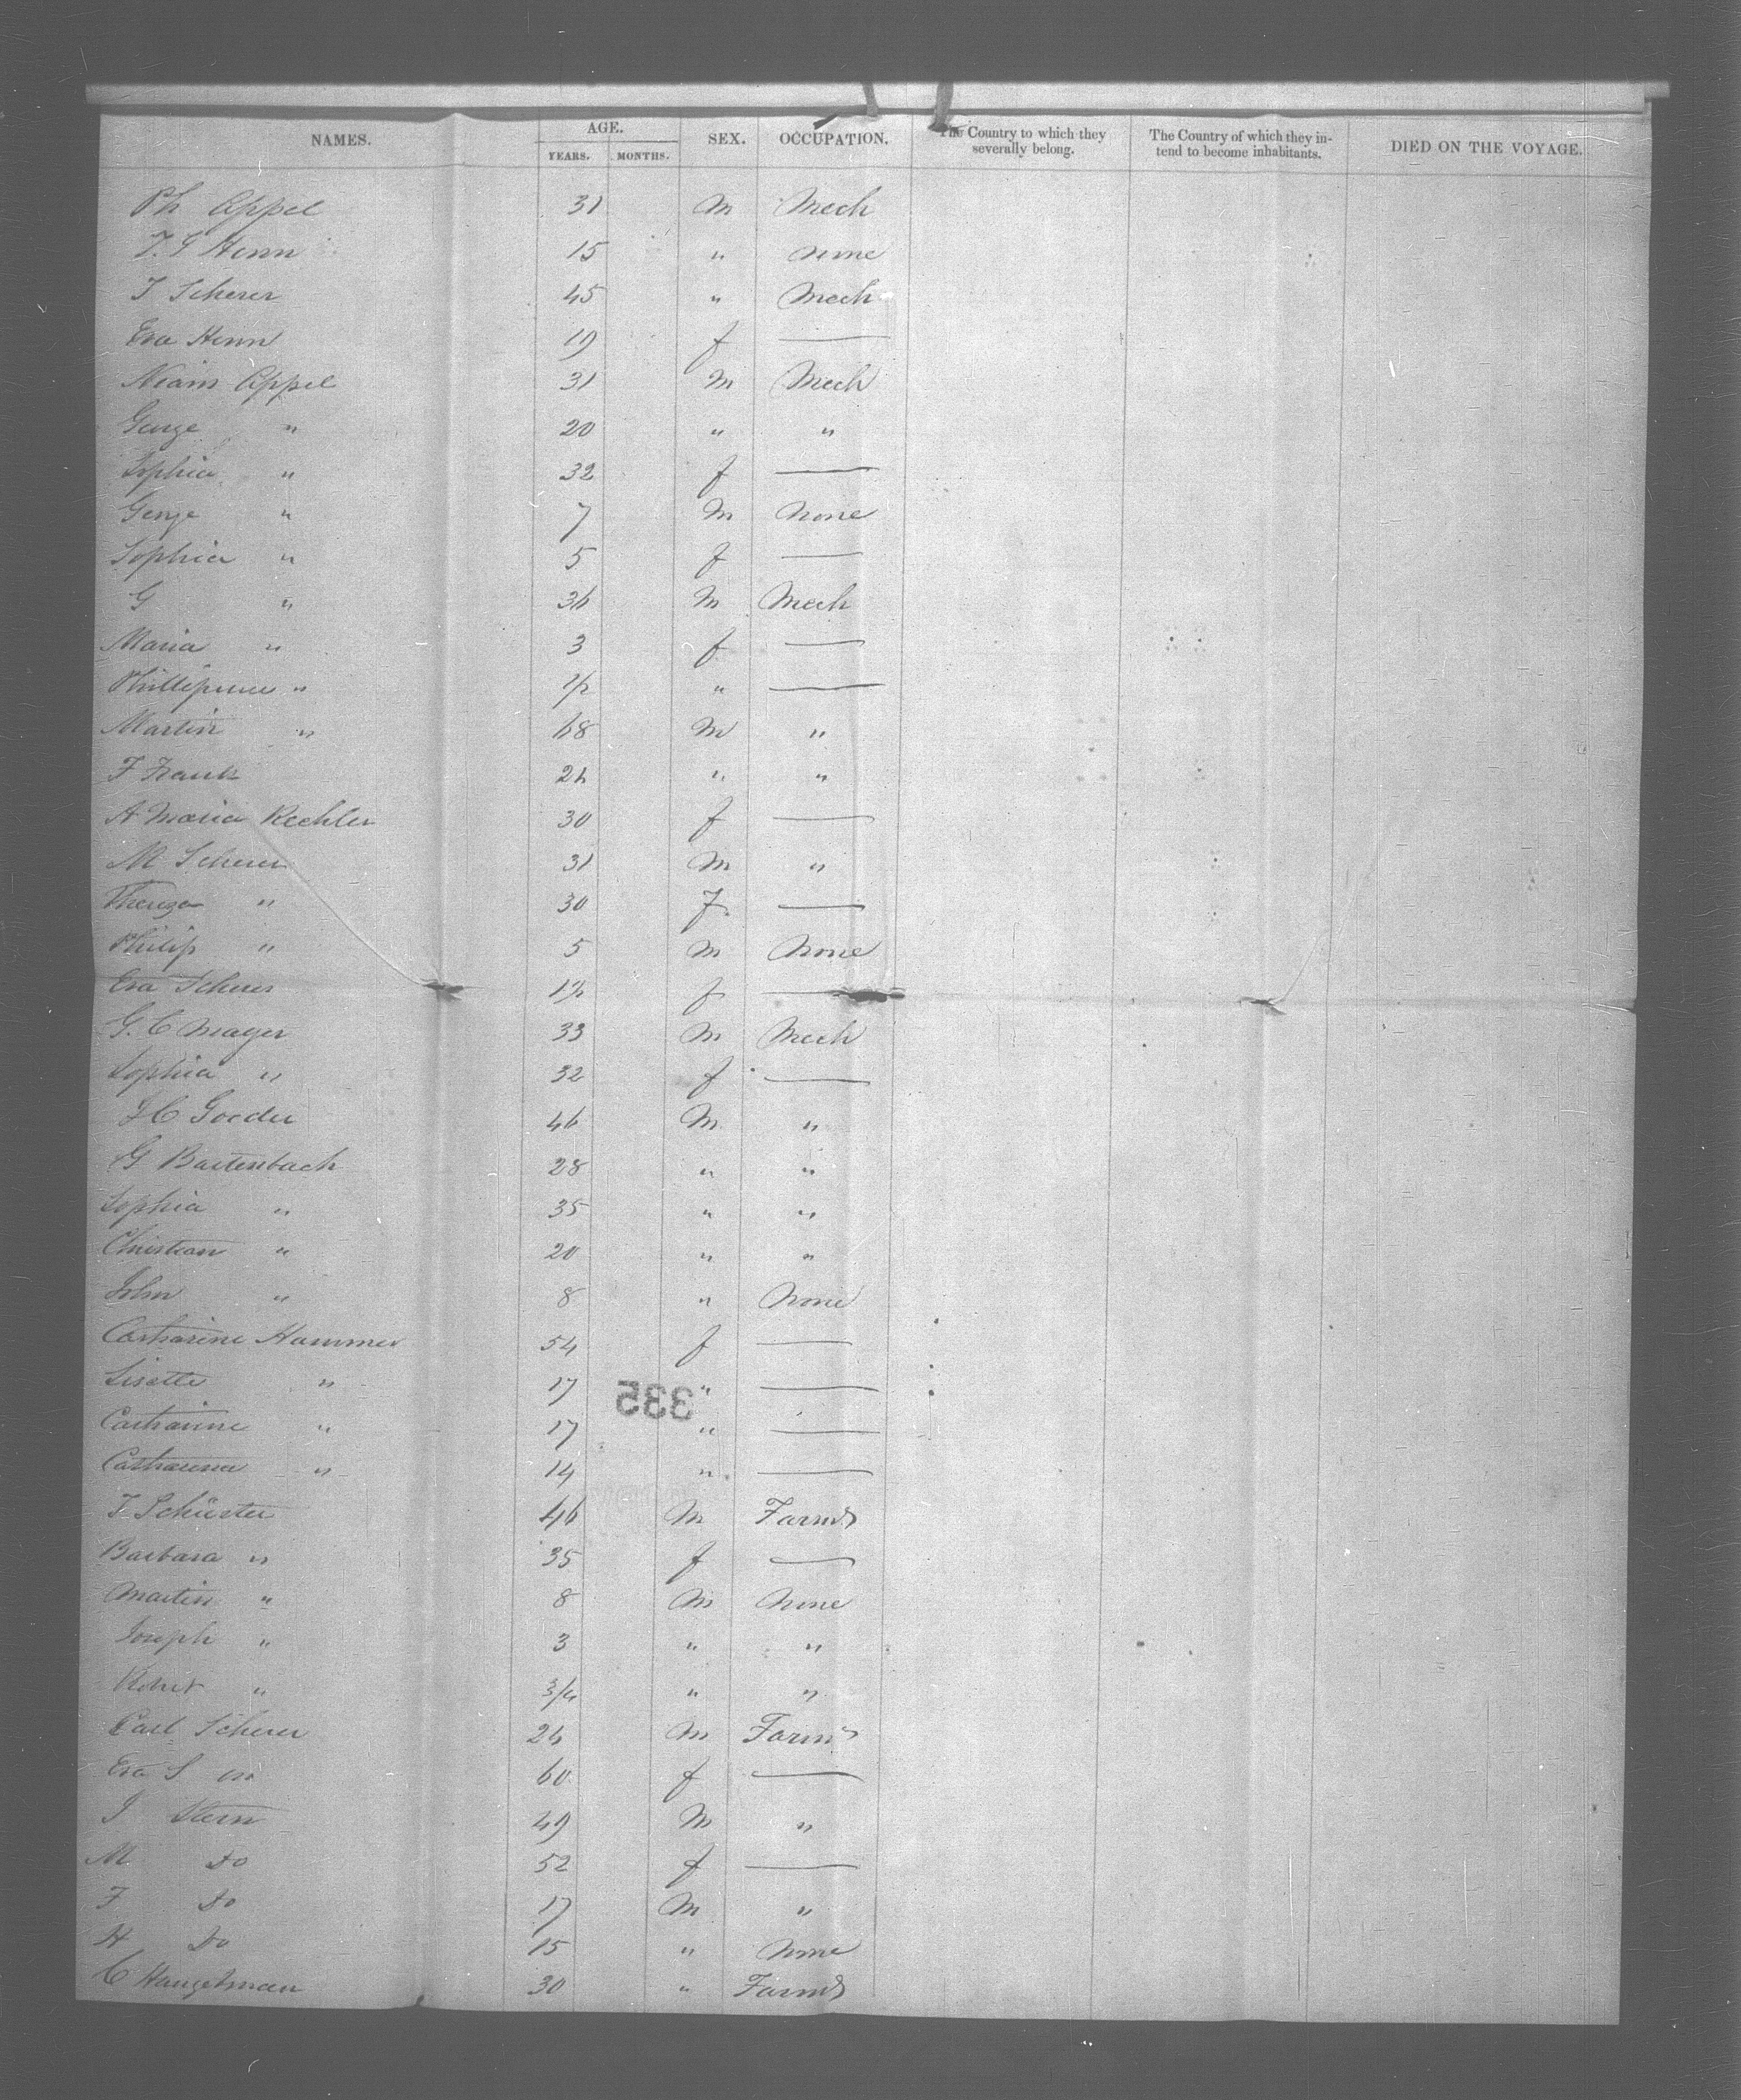 NAMES. AGE. SEX. OCCUPATION. The Country to which they severally belong. The Country of which they intend to become inhabitants. DIED ON THE VOYAGE.
YEARS. MONTHS.
Ph Appel 31 M Mech
T. S Henn 15 " none
T Scherer 45 " Mech
Eva Henn 19 f —
Appel 31 M Mech
George " 20 " "
Sophia " 32 f —
George " 7 M none
Sophia " 5 f —
G " 36 M Mech
Maria " 3 f —
Phillipine " 1/2 " —
Martin " 68 M "
F Frank 24 " "
A Maria Kechler 30 f —
M Scherer 31 M "
Thereza " 30 f —
Philip " 5 M None
Eva Scherer 1 1/2 f —
G. C Mayer 33 M Mech
Sophia " 32 f —
46 M "
G Bartenbach 28 " "
Sophia " 35 " "
Christian " 20 " "
John " 8 " None
Catharine Hammer 54 f —
Lisette " 17 " —
335
Catharine " 17 " —
Catharina " 14 " —
T Schuster 46 M Farmr
Barbara " 35 f —
Martin " 8 M None
Joseph " 3 " "
Robert " 3/4 " "
Carl Scherer 26 M Farmr
Eva S 60 f —
J Stern 49 M "
M Do 52 f —
F Do 17 M "
H Do 15 " None
C Hangelman 30 " Farmr